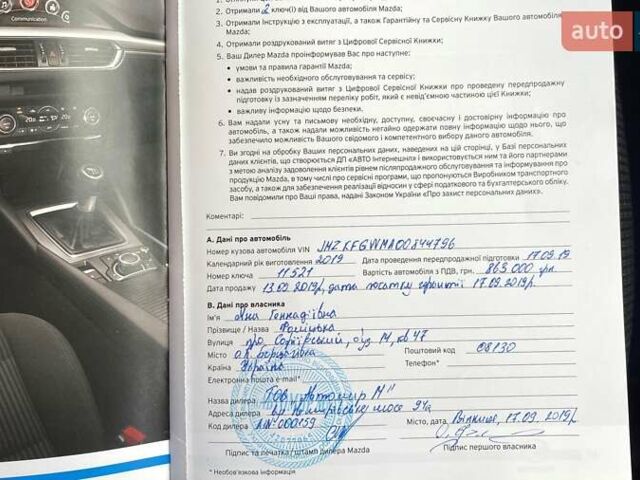 Communication
auto
2. Отримали 2 ключ(і) від Вашого автомобіля Mazda;
3. Отримали Інструкцію з експлуатації, а також Гарантійну та Сервісну Книжку Вашого автомобіля Mazda;
4. Отримали роздрукований витяг з Цифрової Сервісної Книжки;
5. Ваш Дилер Mazda проінформував Вас про наступне:
• умови та правила гарантії Mazda;
• важливість необхідного обслуговування та сервісу;
• надав роздрукований витяг з Цифрової Сервісної Книжки про проведену передпродажну
підготовку із зазначенням переліку робіт, який є невід'ємною частиною цієї Книжки;
• важливу інформацію щодо безпеки.
6. Вам надали усну та письмову необхідну, доступну, своєчасну і достовірну інформацію про
автомобіль, а також надали можливість негайно одержати повну інформацію щодо нього, що
забезпечило можливість Вашого свідомого і компетентного вибору даного автомобіля.
7. Ви згодні на обробку Ваших персональних даних, наведених на цій сторінці, у Базі персональних
даних клієнтів, що створюється ДП «АВТО Інтернешнл» і використовується ним та його партнерами
з метою аналізу задоволення клієнтів рівнем післяпродажного обслуговування та інформування про
продукцію Mazda, в тому числі про сервісні програми, що пропонуються Виробником транспортного
засобу, а також для забезпечення реалізації відносин у сфері податкового та бухгалтерського обліку.
Вам повідомили про Ваші права, надані Законом України «Про захист персональних даних».
Коментарі:
А. Дані про автомобіль
Номер кузова автомобіля VIN JMZKFGWMA00844796
Календарний рік виготовлення 2019 Дата проведення передпродажної підготовки 17.09.19
Номер ключа 11521 Вартість автомобіля з ПДВ, грн. 863.000 грн
Дата продажу 13.09.2019р, дата початку гарантії 17.09.2019р.
В. Дані про власника
Ім'я Геннадіївна
Прізвище / Назва
Вулиця кв 47
Місто Поштовий код 08130
Країна Україна Телефон*
Електронна пошта e-mail*
Назва дилера ТОВ "Автомир М"
Адреса дилера шосе 94а
Код дилера Місто, дата Вінниця, 17.09.2019р
Підпис та печатка / штамп дилера Mazda Підпис першого власника
* Необов'язкова інформація